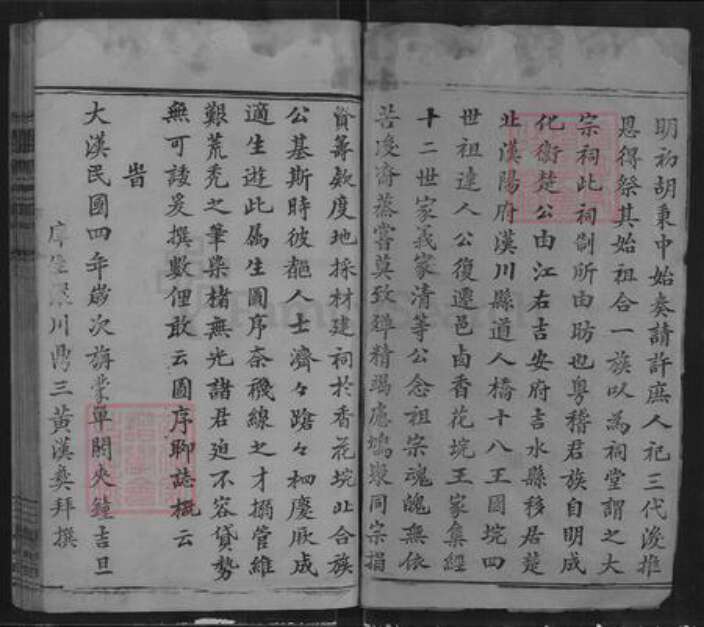 明初胡秉中始奏請許庶人祀三代後推
恩得祭其始祖合一族以為祠堂謂之大
宗祠此祠制所由昉也粵稽君族自明成
化衡楚公由江右吉安府吉水縣移居楚
北漢陽府漢川縣道人橋十八王圖垸四
世祖達人公復遷邑卤香花垸王家集經
十二世家義家清等公念祖宗魂魄無依
苦凌齋蒸嘗莫致殫精竭慮鳩聚同宗捐
資籌欵度地採材建祠於香花垸此合族
公基斯時彼都人士濟々蹌々相慶厥成
適生遊此屬生圖序奈襪線之才搦管維
艱荒禿之筆染楮無光諸君迫不容貸勢
無可諉爰撰數俚敢云圖序聊誌概云
旹
大漢民國四年歲次旃蒙單閼夾鐘吉旦
庠生 川鼎三黃漢彝拜撰